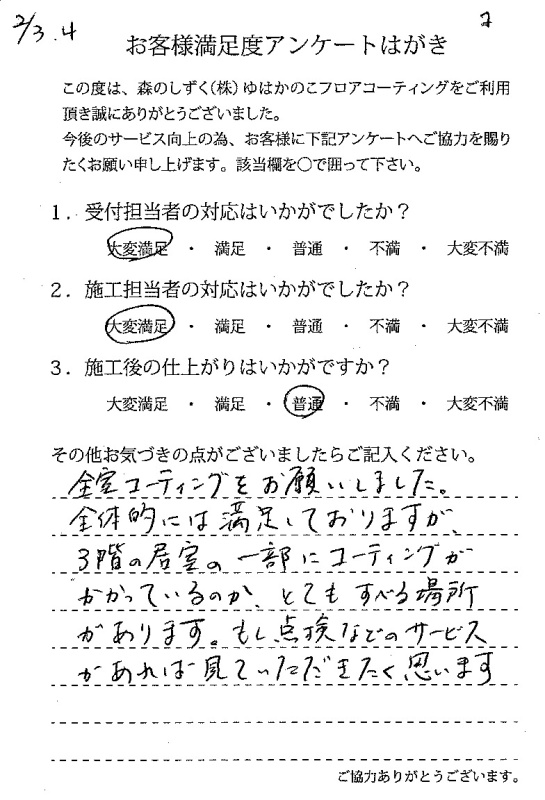 2/3.4
お客様満足度アンケートはがき
この度は、森のしずく(株)ゆはかのこフロアコーティングをご利用
頂き誠にありがとうございました。
今後のサービス向上の為、お客様に下記アンケートへご協力を賜り
たくお願い申し上げます。該当欄を〇で囲って下さい。
1．受付担当者の対応はいかがでしたか？
大変満足 ・ 満足 ・ 普通 ・ 不満 ・ 大変不満
2．施工担当者の対応はいかがでしたか？
大変満足 ・ 満足 ・ 普通 ・ 不満 ・ 大変不満
3．施工後の仕上がりはいかがですか？
大変満足 ・ 満足 ・ 普通 ・ 不満 ・ 大変不満
その他お気づきの点がございましたらご記入ください。
全室コーティングをお願いしました。
全体的には満足しておりますが、
3階の居室の一部にコーティングが
かかっているのか、とてもすべる場所
があります。もし点検などのサービス
があれば見ていただきたく思います
ご協力ありがとうございます。